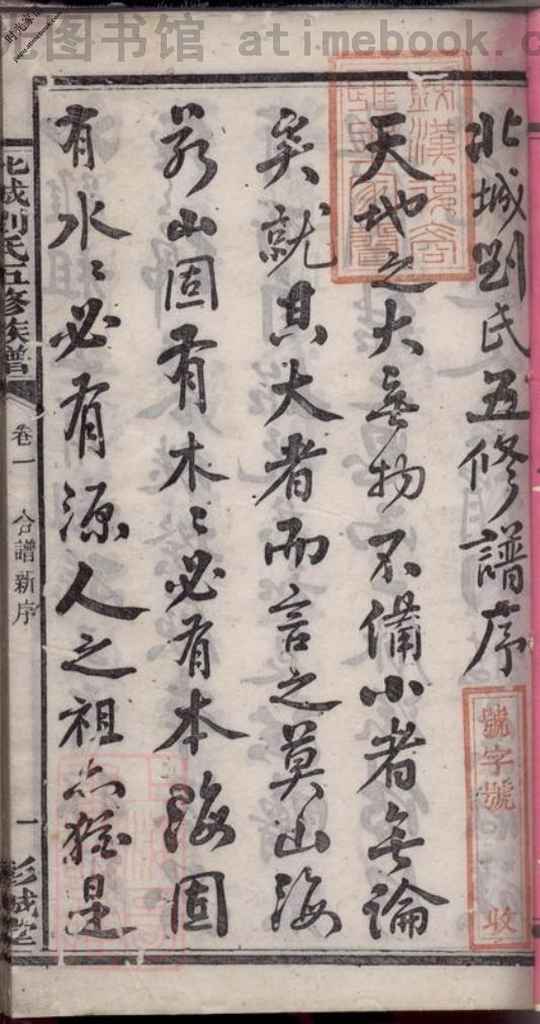 图书馆 atimebook.c
北城劉氏五修譜序
天地之大無物不備小者無論
矣就其大者而言之莫山海
若山固有木〻必有本海固
有水〻必有源人之祖亦猶是
號字號
收
北城劉氏五修族譜
卷一
合譜新序
一
彭城堂